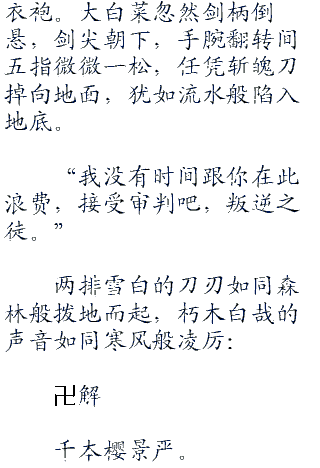 衣袍。大白菜忽然剑柄倒
悬，剑尖朝下，手腕翻转间
五指微微一松，任凭斩魄刀
掉向地面，犹如流水般陷入
地底。
“我没有时间跟你在此
浪费，接受审判吧，叛逆之
徒。”
两排雪白的刀刃如同森
林般拨地而起，朽木白哉的
声音如同寒风般凌厉：
卍解
千本樱景严。